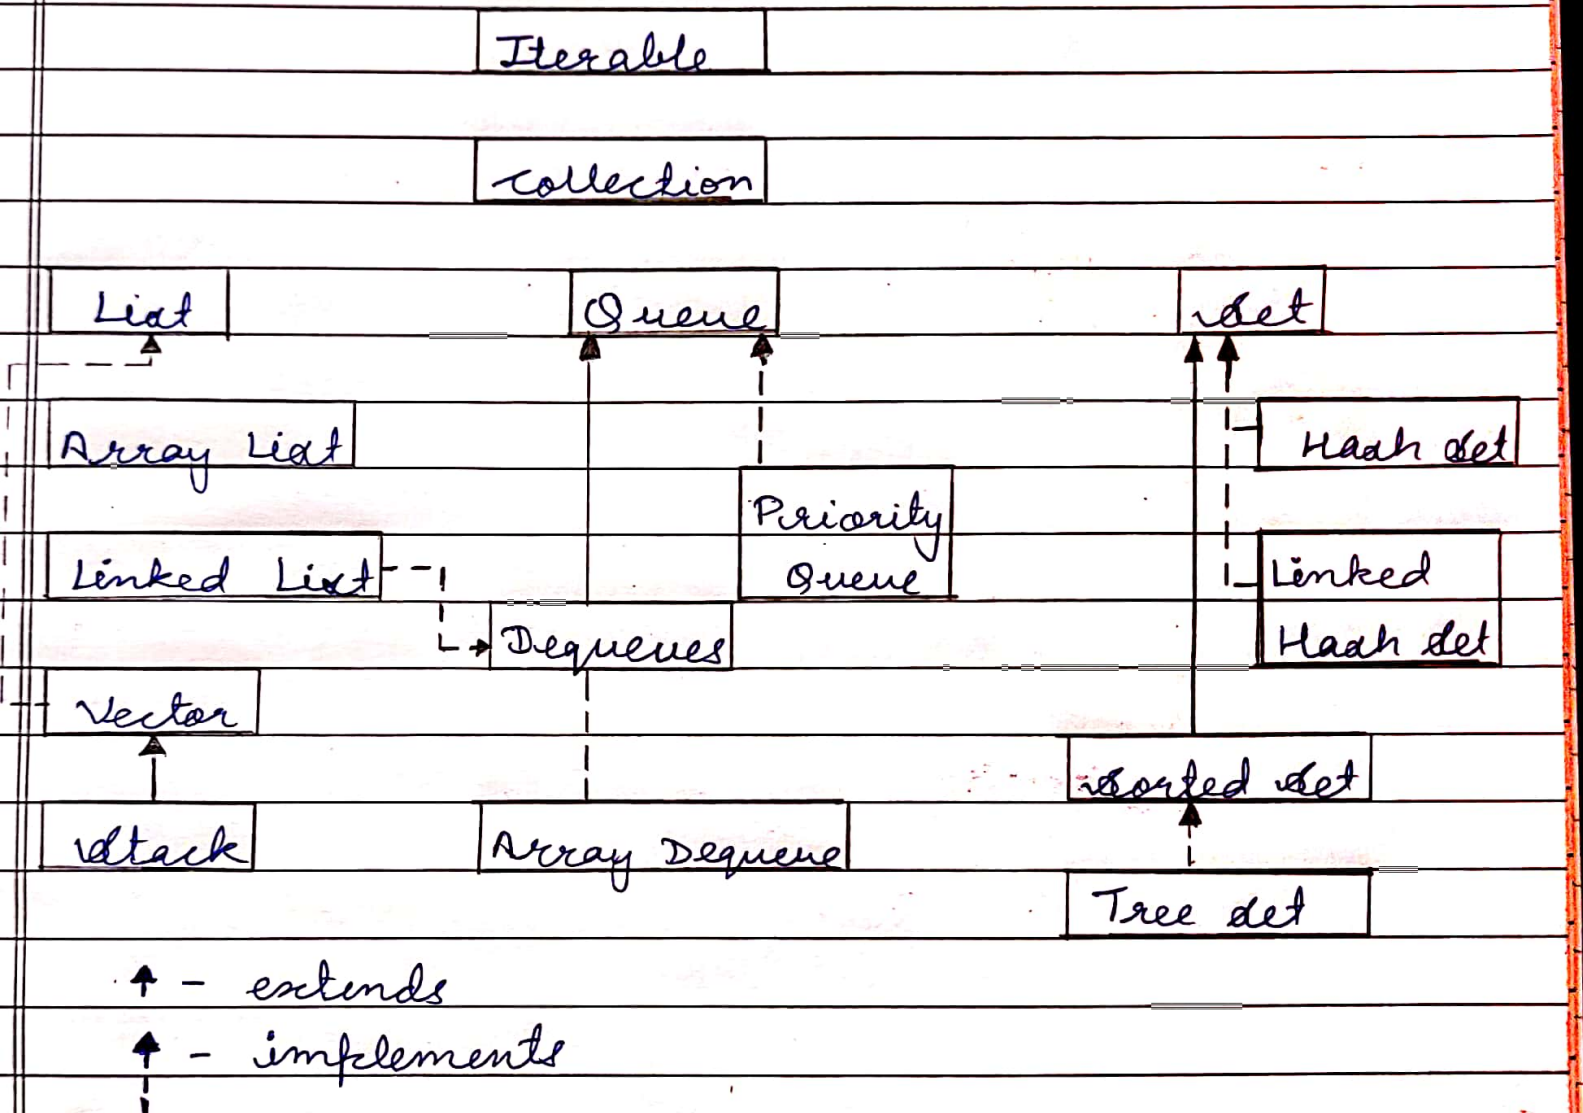 Iterable
Collection
List Queue Set
Array List Hash Set
Priority
Linked List Queue Linked
Dequeues Hash Set
Vector
Sorted Set
Stack Array Dequeue
Tree Set
↑ - extends
↑ - implements